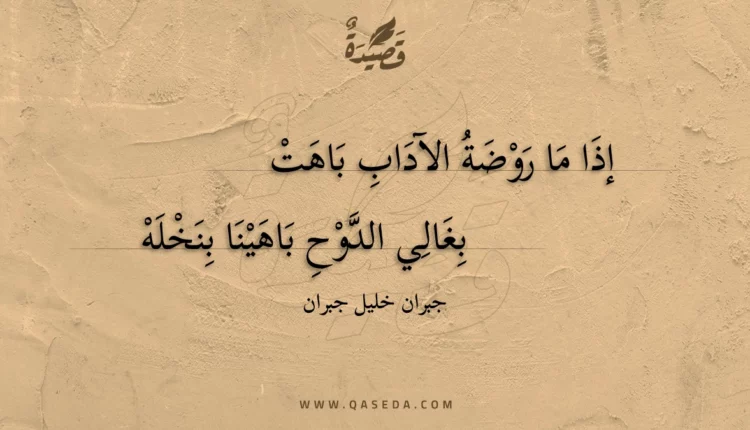 قَصِيدَةٌ
إِذَا مَا رَوْضَةُ الآدَابِ بَاهَتْ
بِغَالِي الدَّوْحِ بَاهَيْنَا بِنَخْلَهْ
جبران خليل جبران
WWW.QASEDA.COM